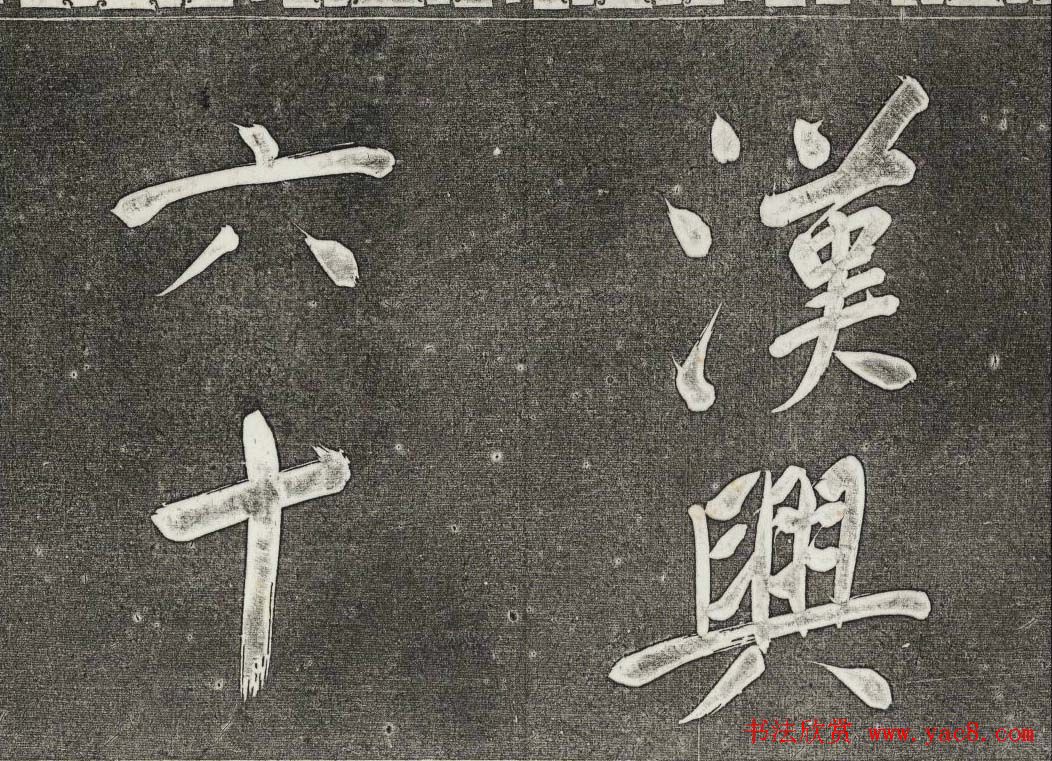 漢興
六十
书法欣赏 www.yac8.com